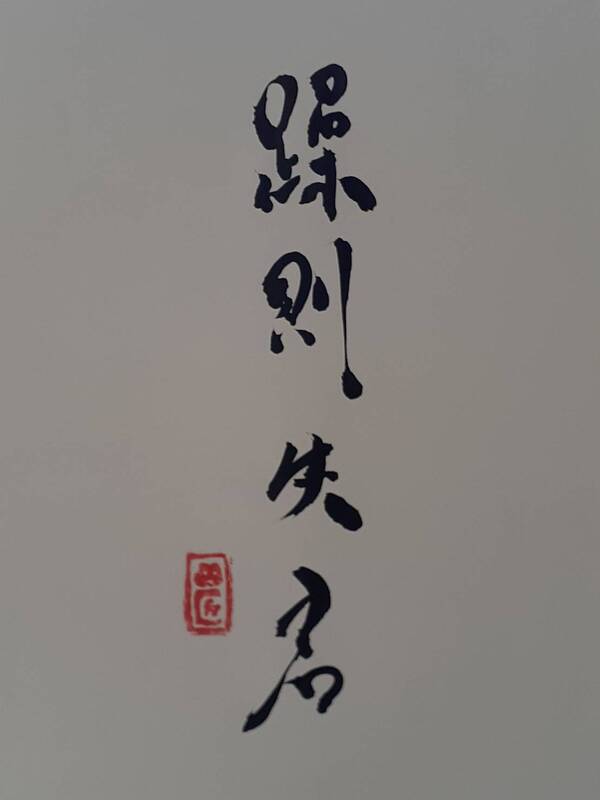 躁則失君